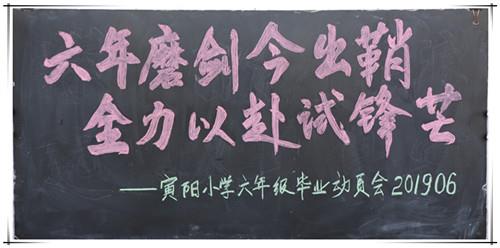 六年磨剑今出鞘
全力以赴试锋芒
——寅阳小学六年级毕业动员会201906